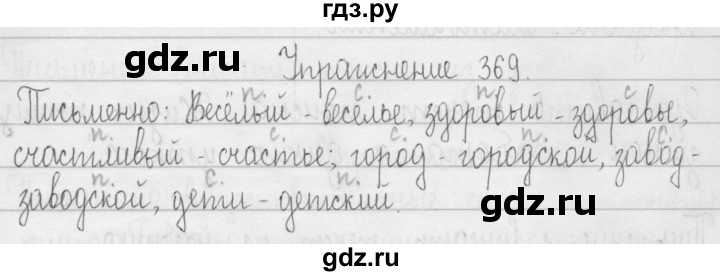 гдз.ру
gdz.ru
Упражнение 369.
gdz.ru
п. с. п. с.
Письменно: Весёлый - веселье, здоровый - здоровье,
п. с. с. п. с.
счастливый - счастье; город - городской, завод -
п. с. п.
заводской, дети - детский.
gdz.ru